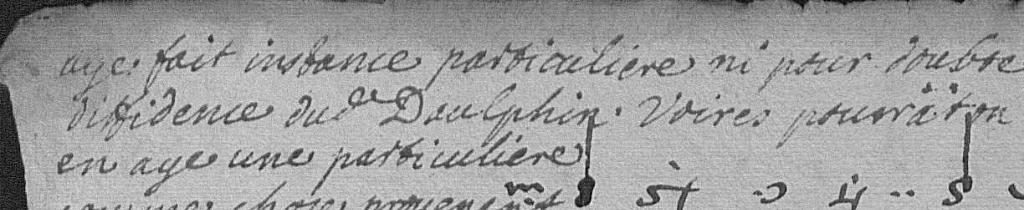 aye fait instance particuliere ni pour doubte
diffidence dud Daulphin. Voires pourrat on
en aye une particuliere